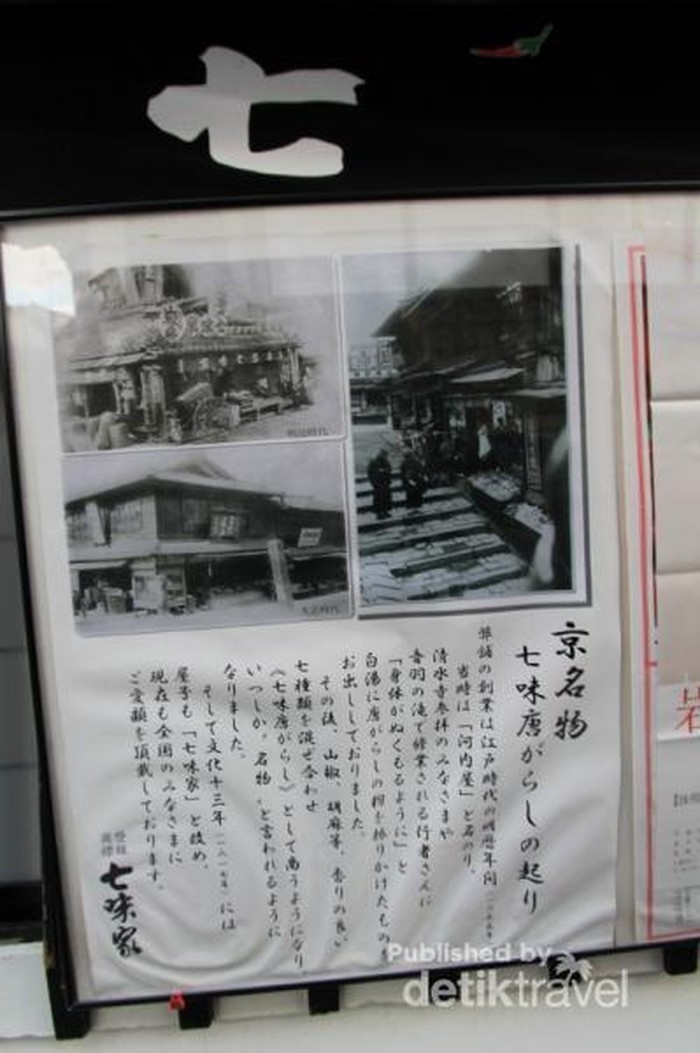 七
明治時代
大正時代
京名物
七味唐がらしの起り
弊舗の創業は江戸時代の明暦年間
当時は「河内屋」と名のり、
清水寺参拝のみなさまや
音羽の滝で修業される行者さんに
「身体がぬくもるように」と
白湯に唐がらしの粉を振りかけたもの
お出ししておりました。
その後、山椒、胡麻等、香りの良い
七種類を混ぜ合わせ
《七味唐がらし》として商うようになり
いつしか〝名物〟と言われるように
なりました。
そして文化十三年 には
屋号も「七味家」と改め、
現在も全国のみなさまに
ご愛顧を頂戴しております。
登録
商標
七味家
Published by
detiktravel